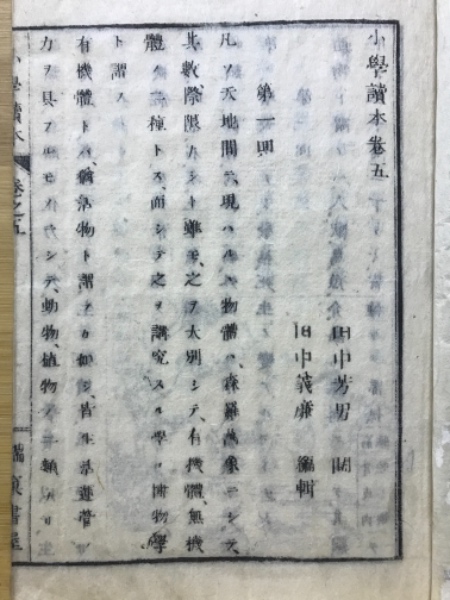 小學讀本卷五
田中芳男 閲
田中義廉 編輯
第一囘
凡ソ天地間ニ、現ハルヽ物體ハ、森羅萬象ニシテ、
其數際限ナシト雖モ、之ヲ大別シテ、有機體、無機
體ノ二種トス、而シテ之ヲ講究スル學ヲ博物學
ト謂フ
有機體トハ、猶活物ト謂フカ如シ、皆生活運營ノ
力ヲ具フルモノニシテ、動物、植物ノ二類
小學讀本 卷之五
書屋